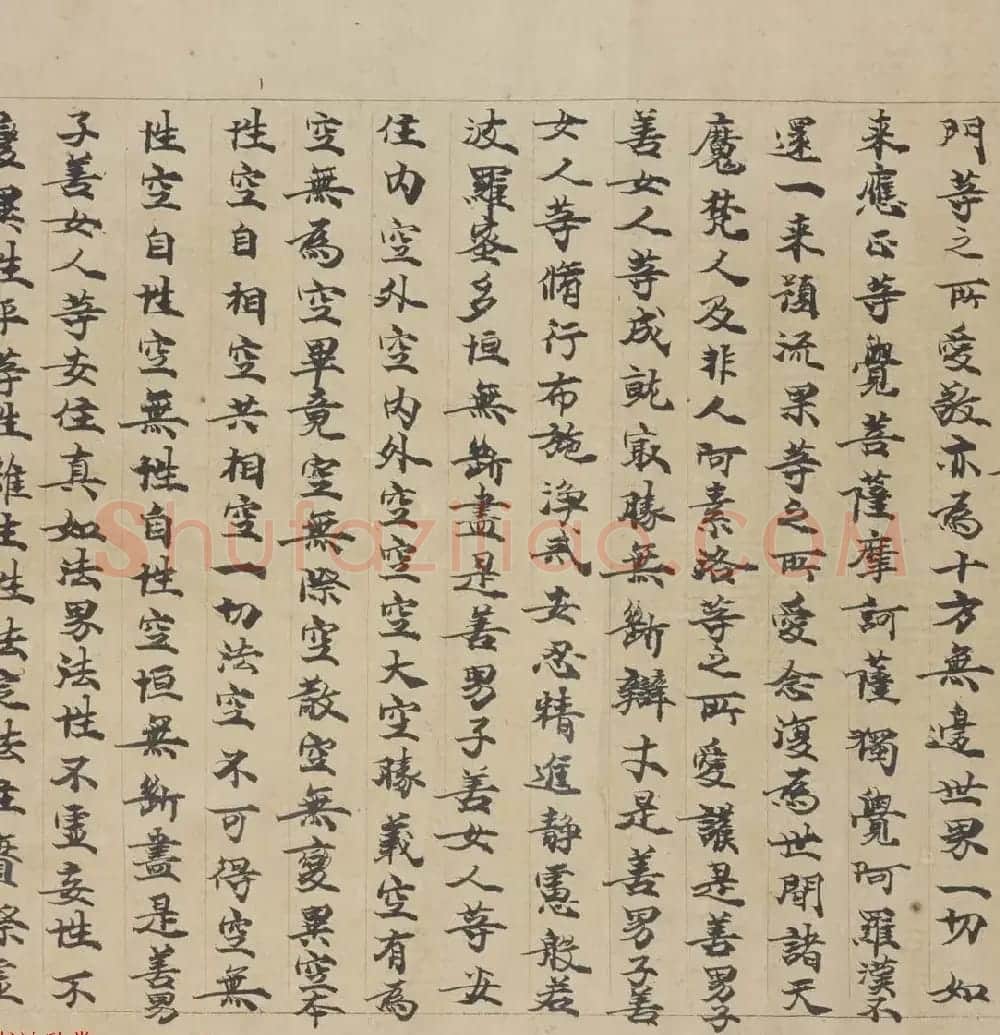 門等之所愛敬亦為十方無邊世界一切如
来應正等覺菩薩摩訶薩獨覺阿羅漢不
還一来預流果等之所愛念復為世間諸天
魔梵人及非人阿素洛等之所愛護是善男子
善女人等成就寂勝無斷辯才是善男子善
女人等脩行布施淨戒安忍精進静慮般若
波羅蜜多恒無斷盡是善男子善女人等安
住内空外空内外空空空大空勝義空有為
空無為空畢竟空無際空散空無變異空本
性空自相空共相空一切法空不可得空無
性空自性空無性自性空恒無斷盡是善男
子善女人等安住真如法界法性不虛妄性不
變異性平等性離生性法定法住實際虛
Shufaziliao.COM